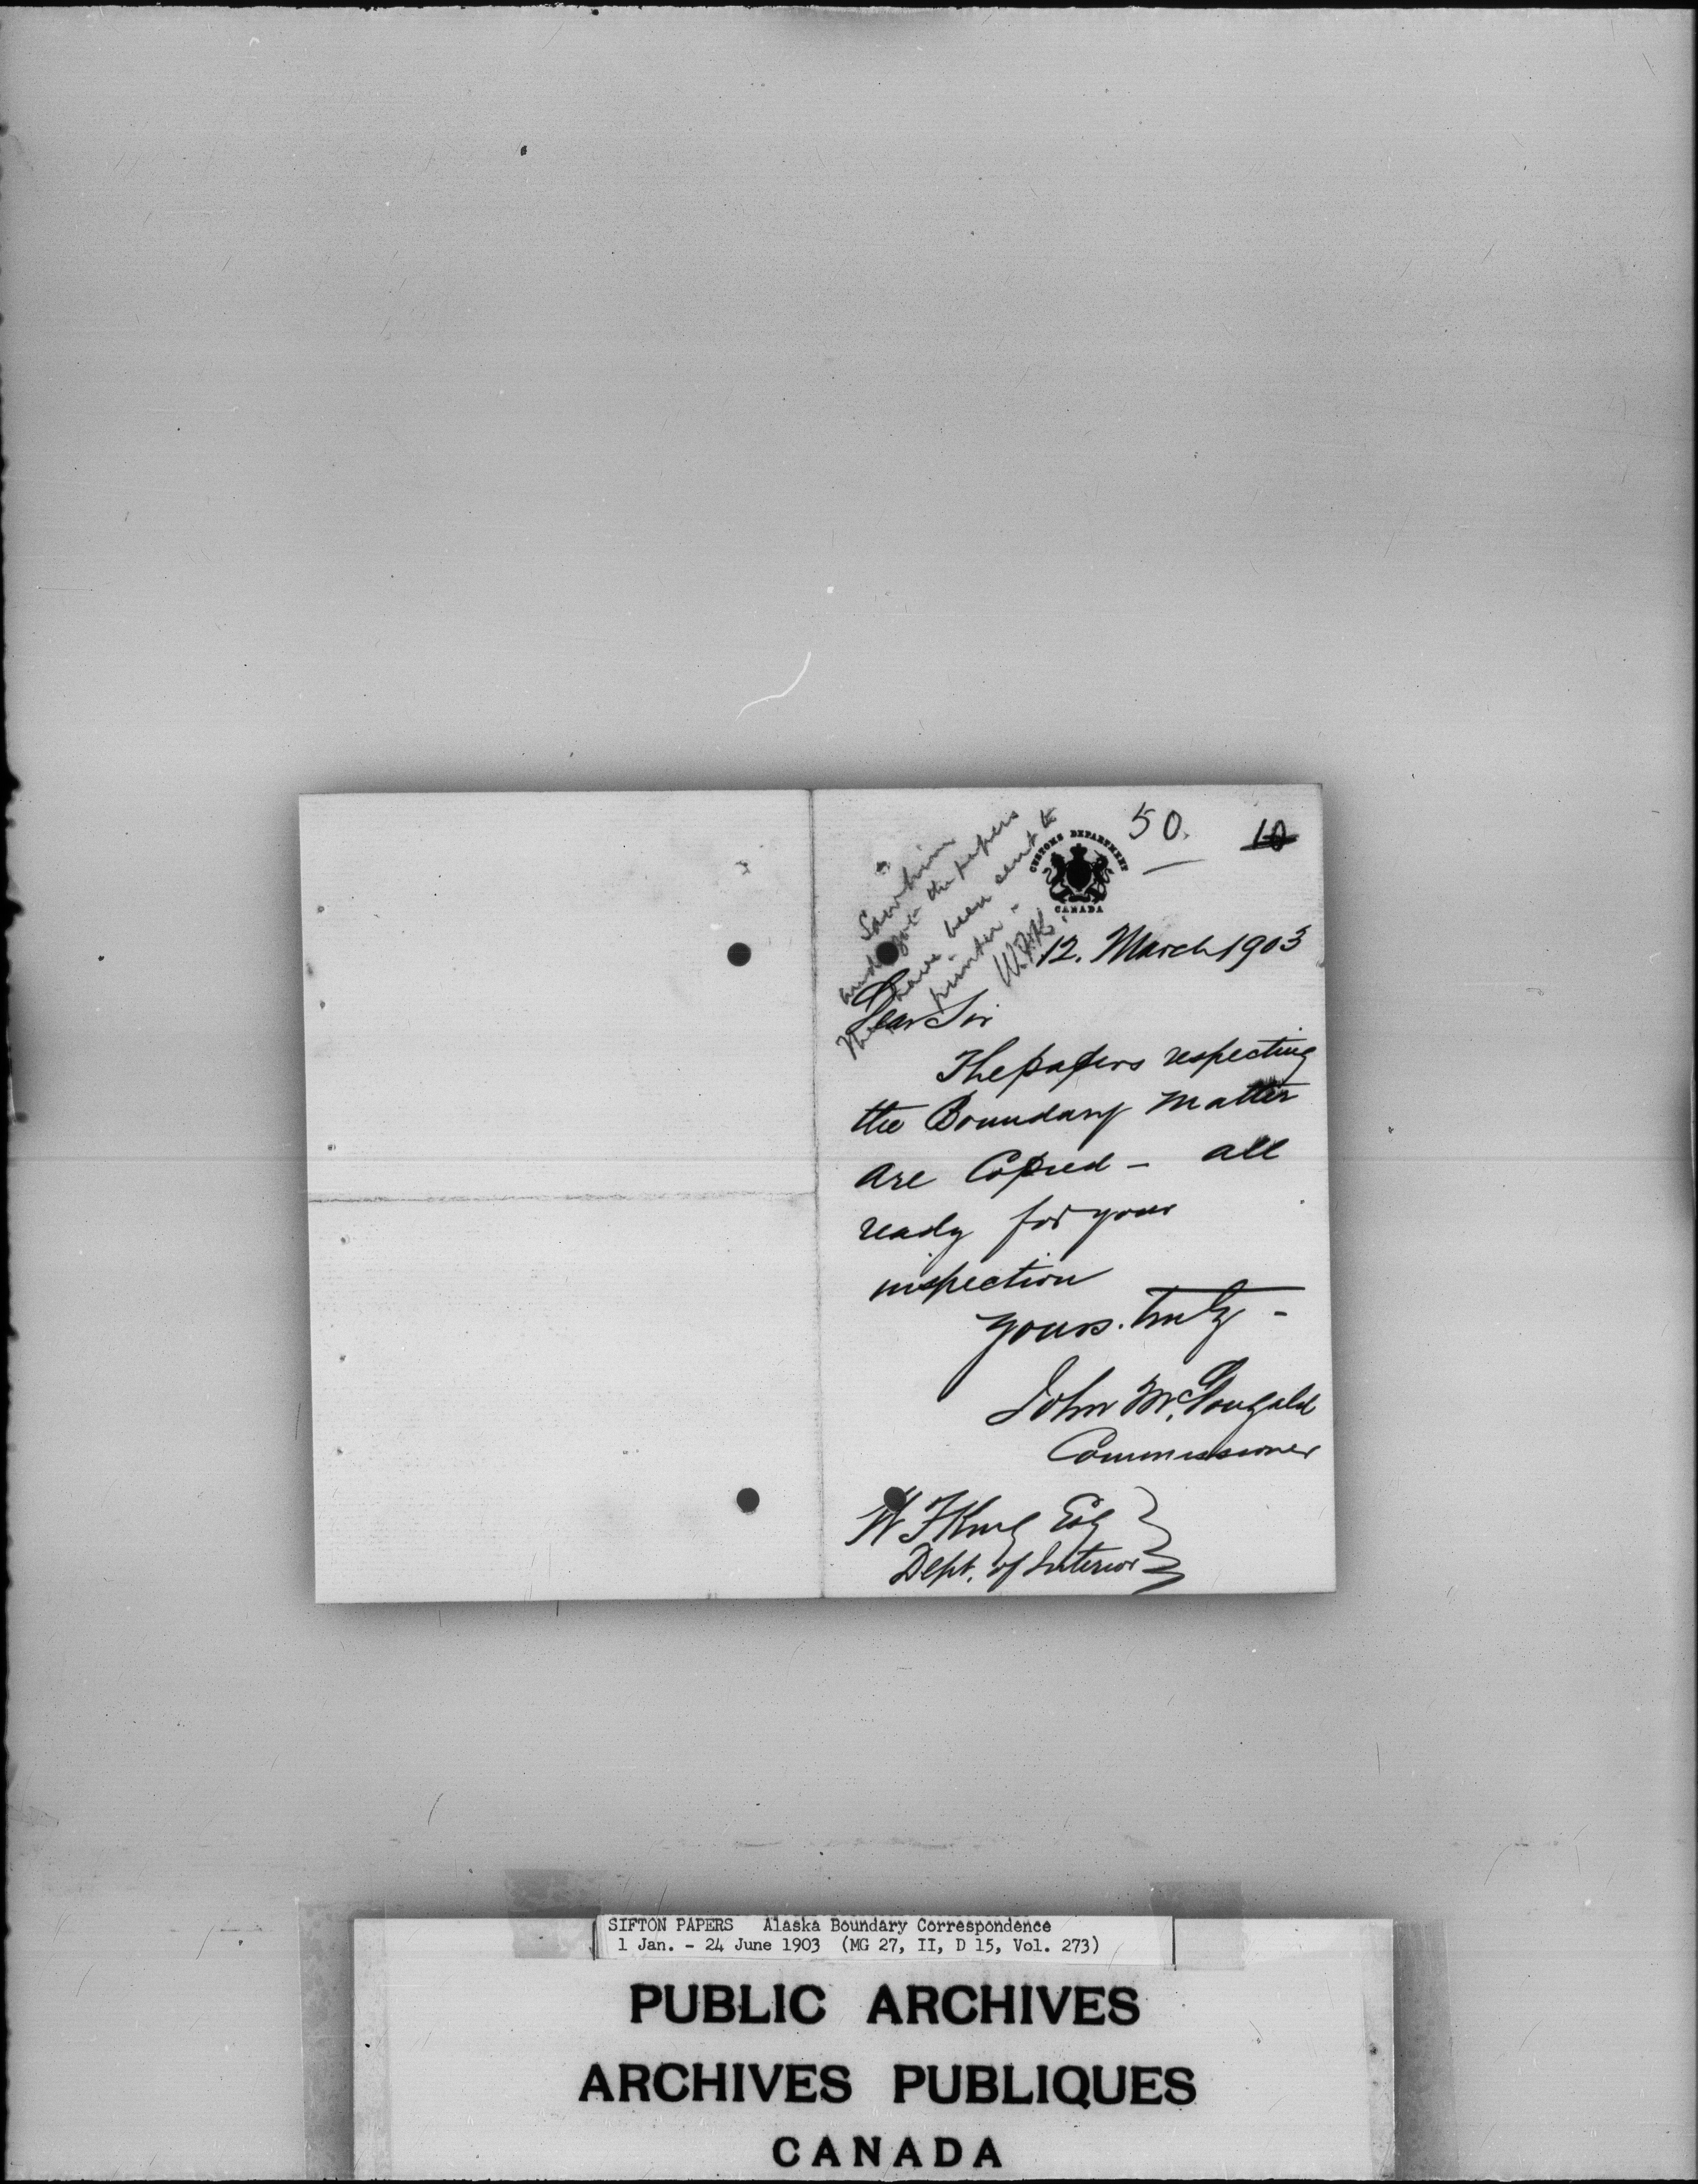 50.
10
CUSTOMS DEPARTMENT
CANADA
Saw him
and got the papers
They have been sent to
printer -
W.F.K.
12. March 1903
Dear Sir
The papers respecting
the Boundary matter
are Copied - all
ready for your
inspection
yours. truly -
John McDougald
Commissioner
W F King Esq
Dept. of Interior
SIFTON PAPERS Alaska Boundary Correspondence
1 Jan. - 24 June 1903 (MG 27, II, D 15, Vol. 273)
PUBLIC ARCHIVES
ARCHIVES PUBLIQUES
CANADA